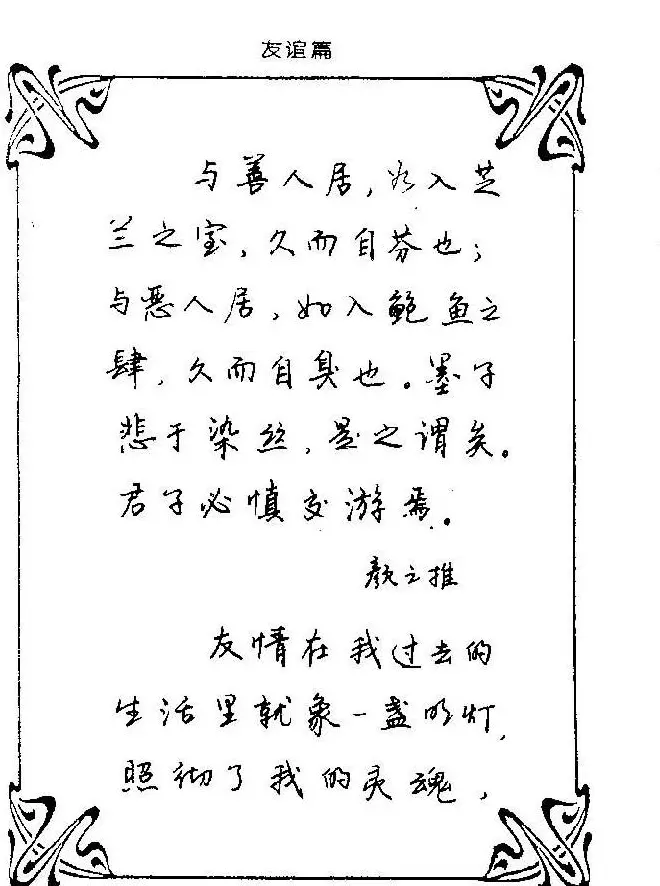 友谊篇
与善人居，如入芝
兰之室，久而自芬也；
与恶人居，如入鲍鱼之
肆，久而自臭也。墨子
悲于染丝，是之谓矣。
君子必慎交游焉。
颜之推
友情在我过去的
生活里就象一盏明灯，
照彻了我的灵魂，